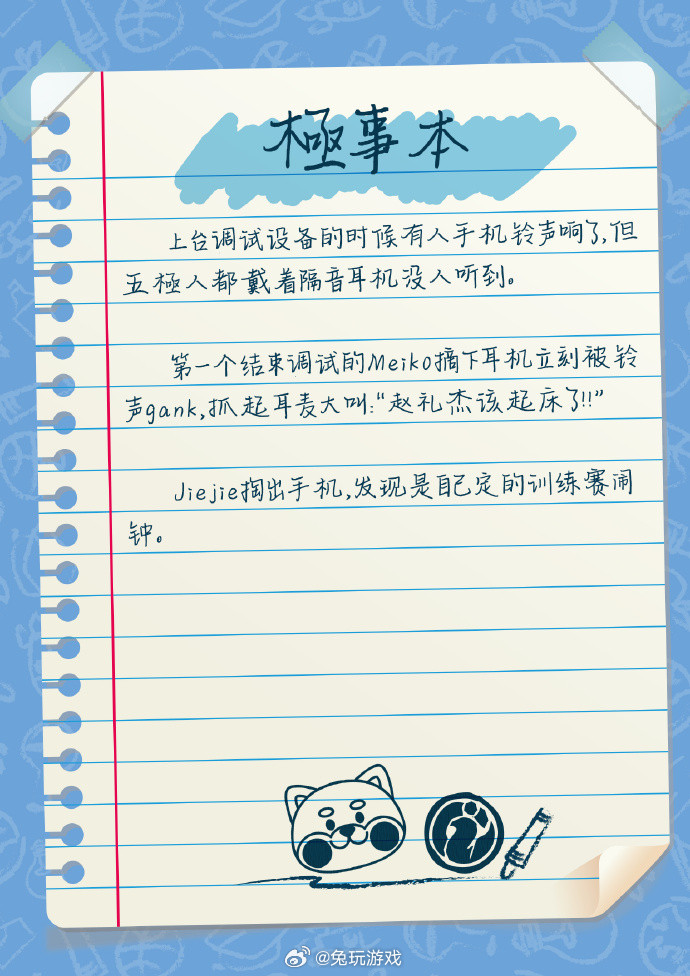 極事本
上台调试设备的时候有人手机铃声响了,但
五極人都戴着隔音耳机没人听到。
第一个结束调试的Meiko摘下耳机立刻被铃
声gank,抓起耳麦大叫:“赵礼杰该起床了!!”
Jiejie掏出手机,发现是自己定的训练赛闹
钟。
@兔玩游戏